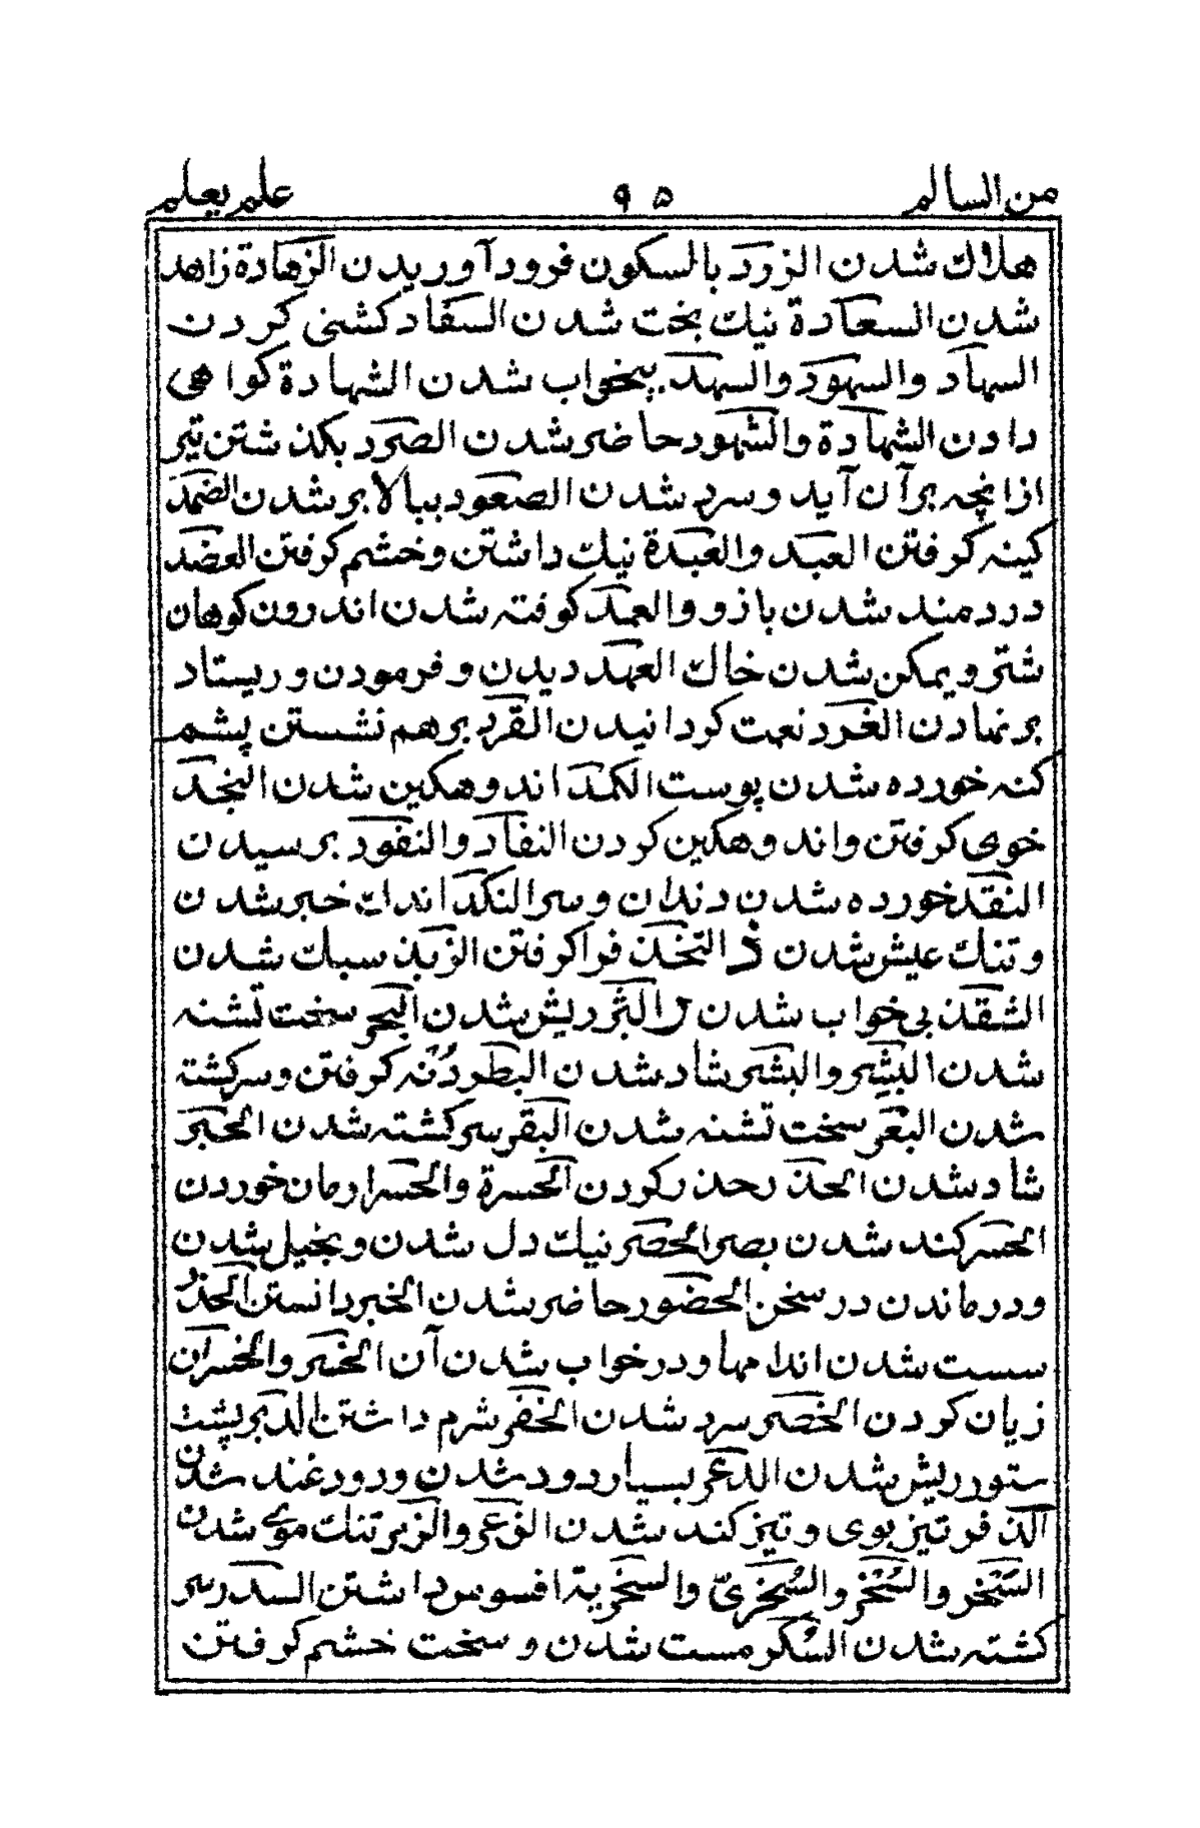 من السالم ۹۵ علم يعلم
هلاك شدن الزرد بالسكون فرود آوريدن الزهادة زاهد
شدن السعادة نيك بخت شدن السفاد كشنى كردن
السهاد والسهود والسهد بيخواب شدن الشهادة كواهى
دادن الشهادة والشهود حاضر شدن الصرد بكذشتن تير
ازانچه برآن آيد وسرد شدن الصعود ببالا بر شدن الضمد
كينه كرفتن العبد والعبدة نيك داشتن وخشم كرفتن العضد
دردمند شدن بازو والعمد كوفته شدن اندرون كوهان
شتر ويمكن شدن خاك العهد ديدن وفرمودن وريستاد
بر نهادن الغرد نعمت كردانيدن القرد برهم نشستن پشم
كنه خورده شدن پوست الكمد اندوهكين شدن النجد
خوى كرفتن واندوهكين كردن النفاد والنفود برسيدن
النقد خورده شدن دندان وسر النكد اندك خير شدن
وتنك عيش شدن ذ التخذ فرا كرفتن الزبذ سبك شدن
الشقذ بى خواب شدن ر البثر ريش شدن البحر سخت تشنه
شدن البشر والبشر شاد شدن البطر دنه كرفتن وسركشته
شدن البغر سخت تشنه شدن البقر سركشته شدن الحبر
شاد شدن الحذر حذر كردن الحسرة والحسر ارمان خوردن
الحسر كند شدن بصر الحصر نيك دل شدن وبخيل شدن
ودرماندن در سخن الحضور حاضر شدن الخبر دانستن الخدر
سست شدن اندامها ودر خواب شدن آن الخسر والخسران
زيان كردن الخصر سرد شدن الخفر شرم داشتن الدبر پشت
ستور ريش شدن الدعر بسيار دود شدن ودود غند شدن
الذفر تيز بوى وتيز كند شدن الزعر والزمر تنك موى شدن
السخر والسخر والسخرى والسخرية افسوس داشتن السدر سر
كشته شدن السكر مست شدن وسخت خشم كرفتن